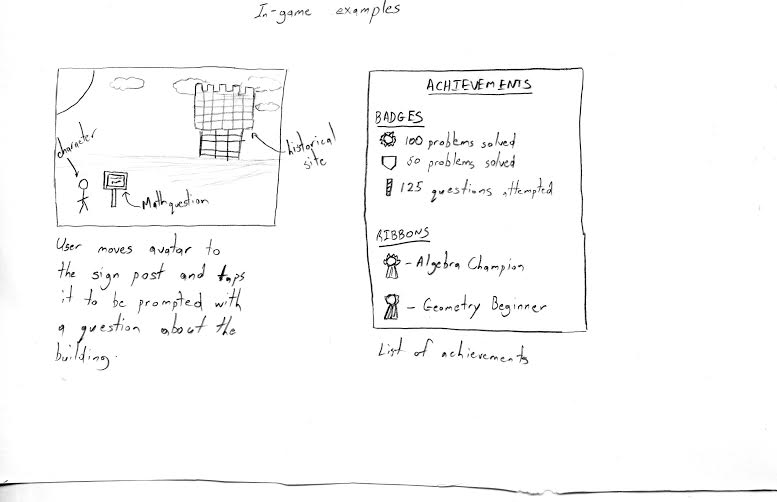 In-game examples
character
historical
site
Math question
User moves avatar to
the sign post and taps
it to be prompted with
a question about the
building.
ACHIEVEMENTS
BADGES
100 problems solved
50 problems solved
125 questions attempted
RIBBONS
- Algebra Champion
- Geometry Beginner
List of achievements